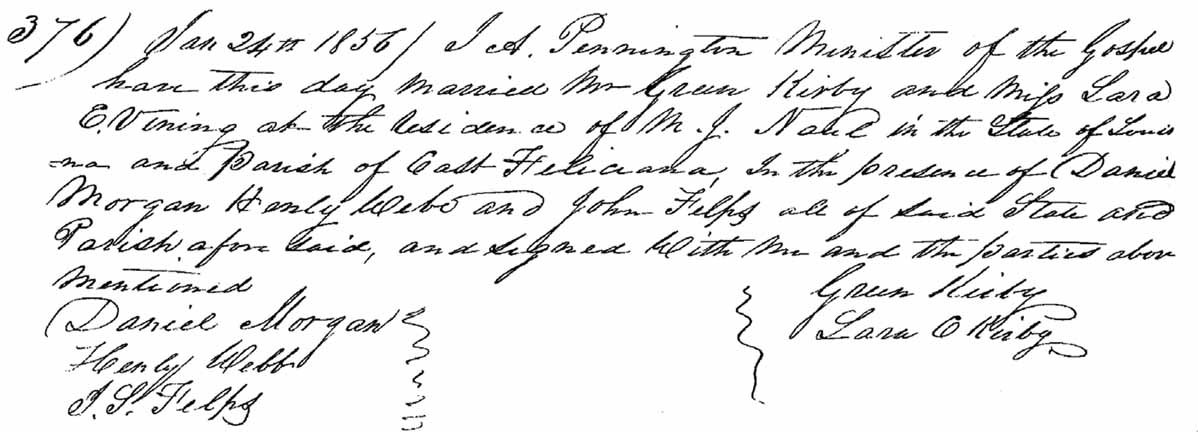 376) Jan 24th 1856/ I A. Pennington Minister of the Gospel
have this day married Mr Green Kirby and Miss Lara
E. Vining at the residence of M. J. Naul in the State of Louis
na and Parish of East Feliciana, In the presence of Daniel
Morgan Henly Webb and John Felps all of said State and
Parish afore said, and signed With me and the parties above
mentioned
Green Kirby
Daniel Morgan
Lara E Kirby
Henly Webb
J. S. Felps